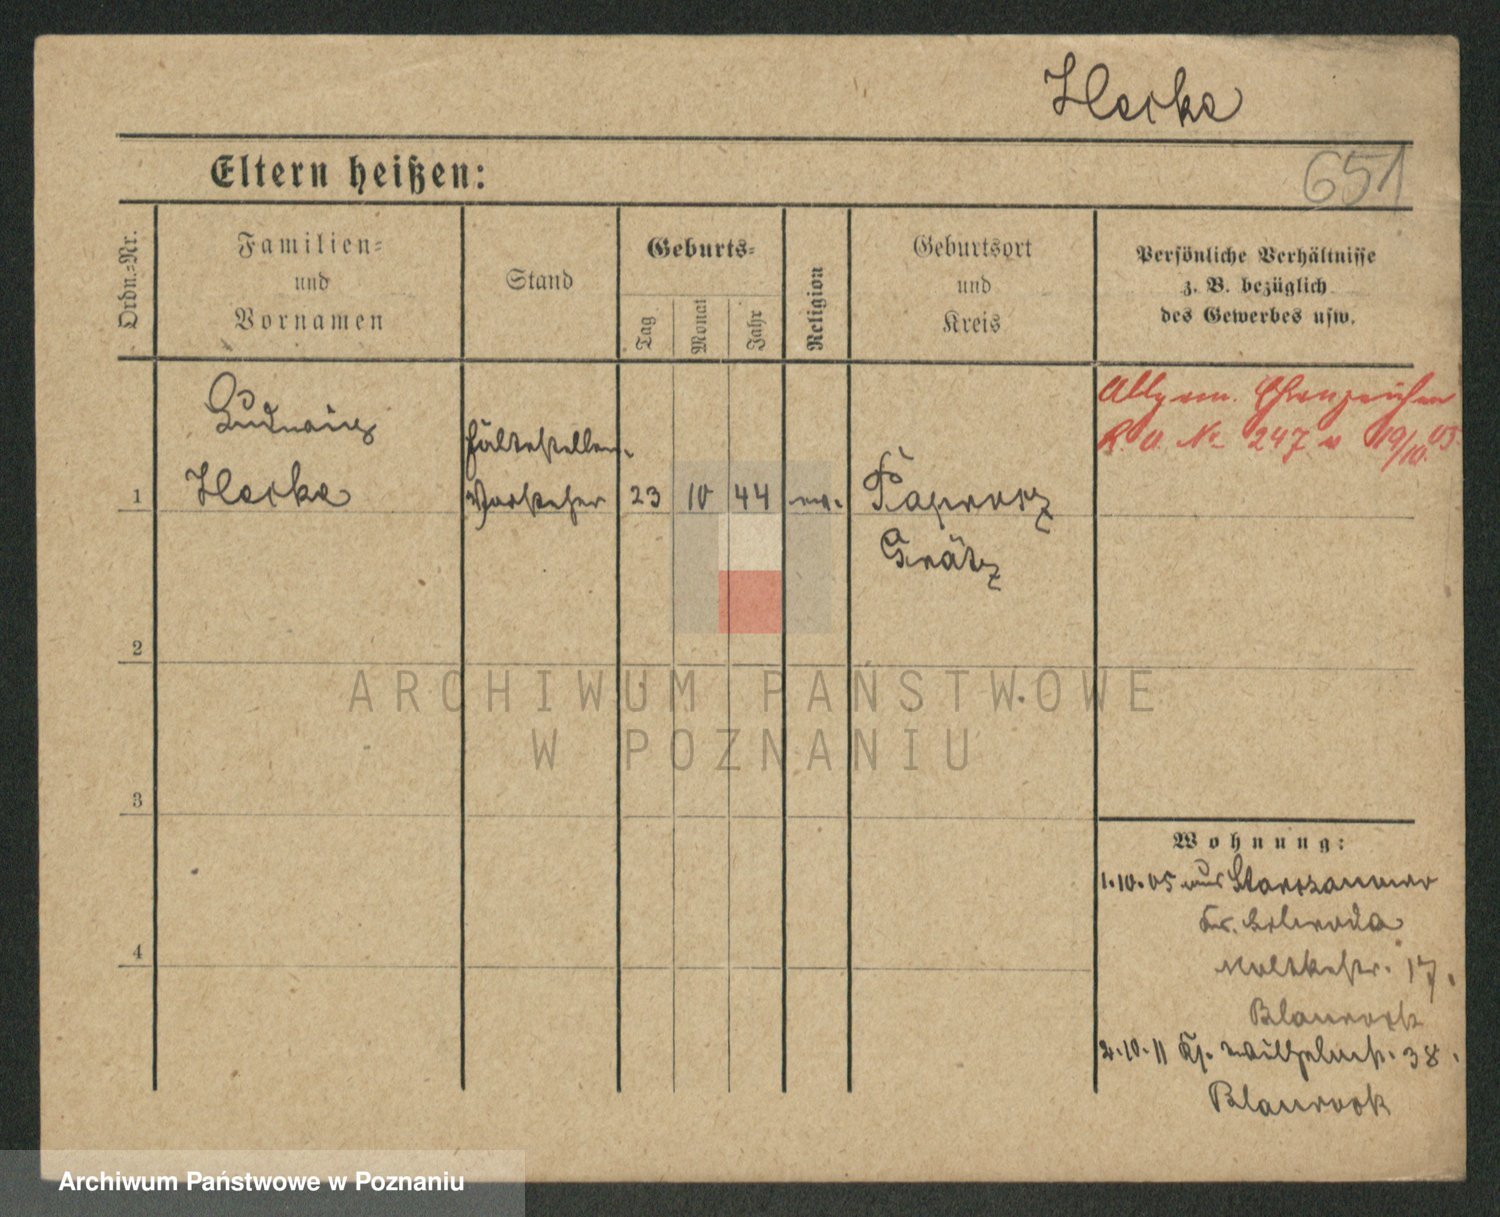 Hecke
651
Eltern heißen:
Ordn.-Nr.
Familien-
und
Vornamen
Stand
Geburts-
Tag
Monat
Jahr
Religion
Geburtsort
und
Kreis
Persönliche Verhältnisse
z. B. bezüglich
des Gewerbes usw.
Allgem. Ehrenzeichen
No 247 v 19/10.05.
Ludwig
Hecke
Haltestellen-
Vorsteher
1
23
10
44
ev.
Paprosz
Grätz
2
3
4
ARCHIWUM PAŃSTWOWE
W POZNANIU
Wohnung:
1.10.05 aus
Kr. Schroda
Moltkestr. 17.
2.10.11 Wilhelmstr. 38.
Archiwum Państwowe w Poznaniu